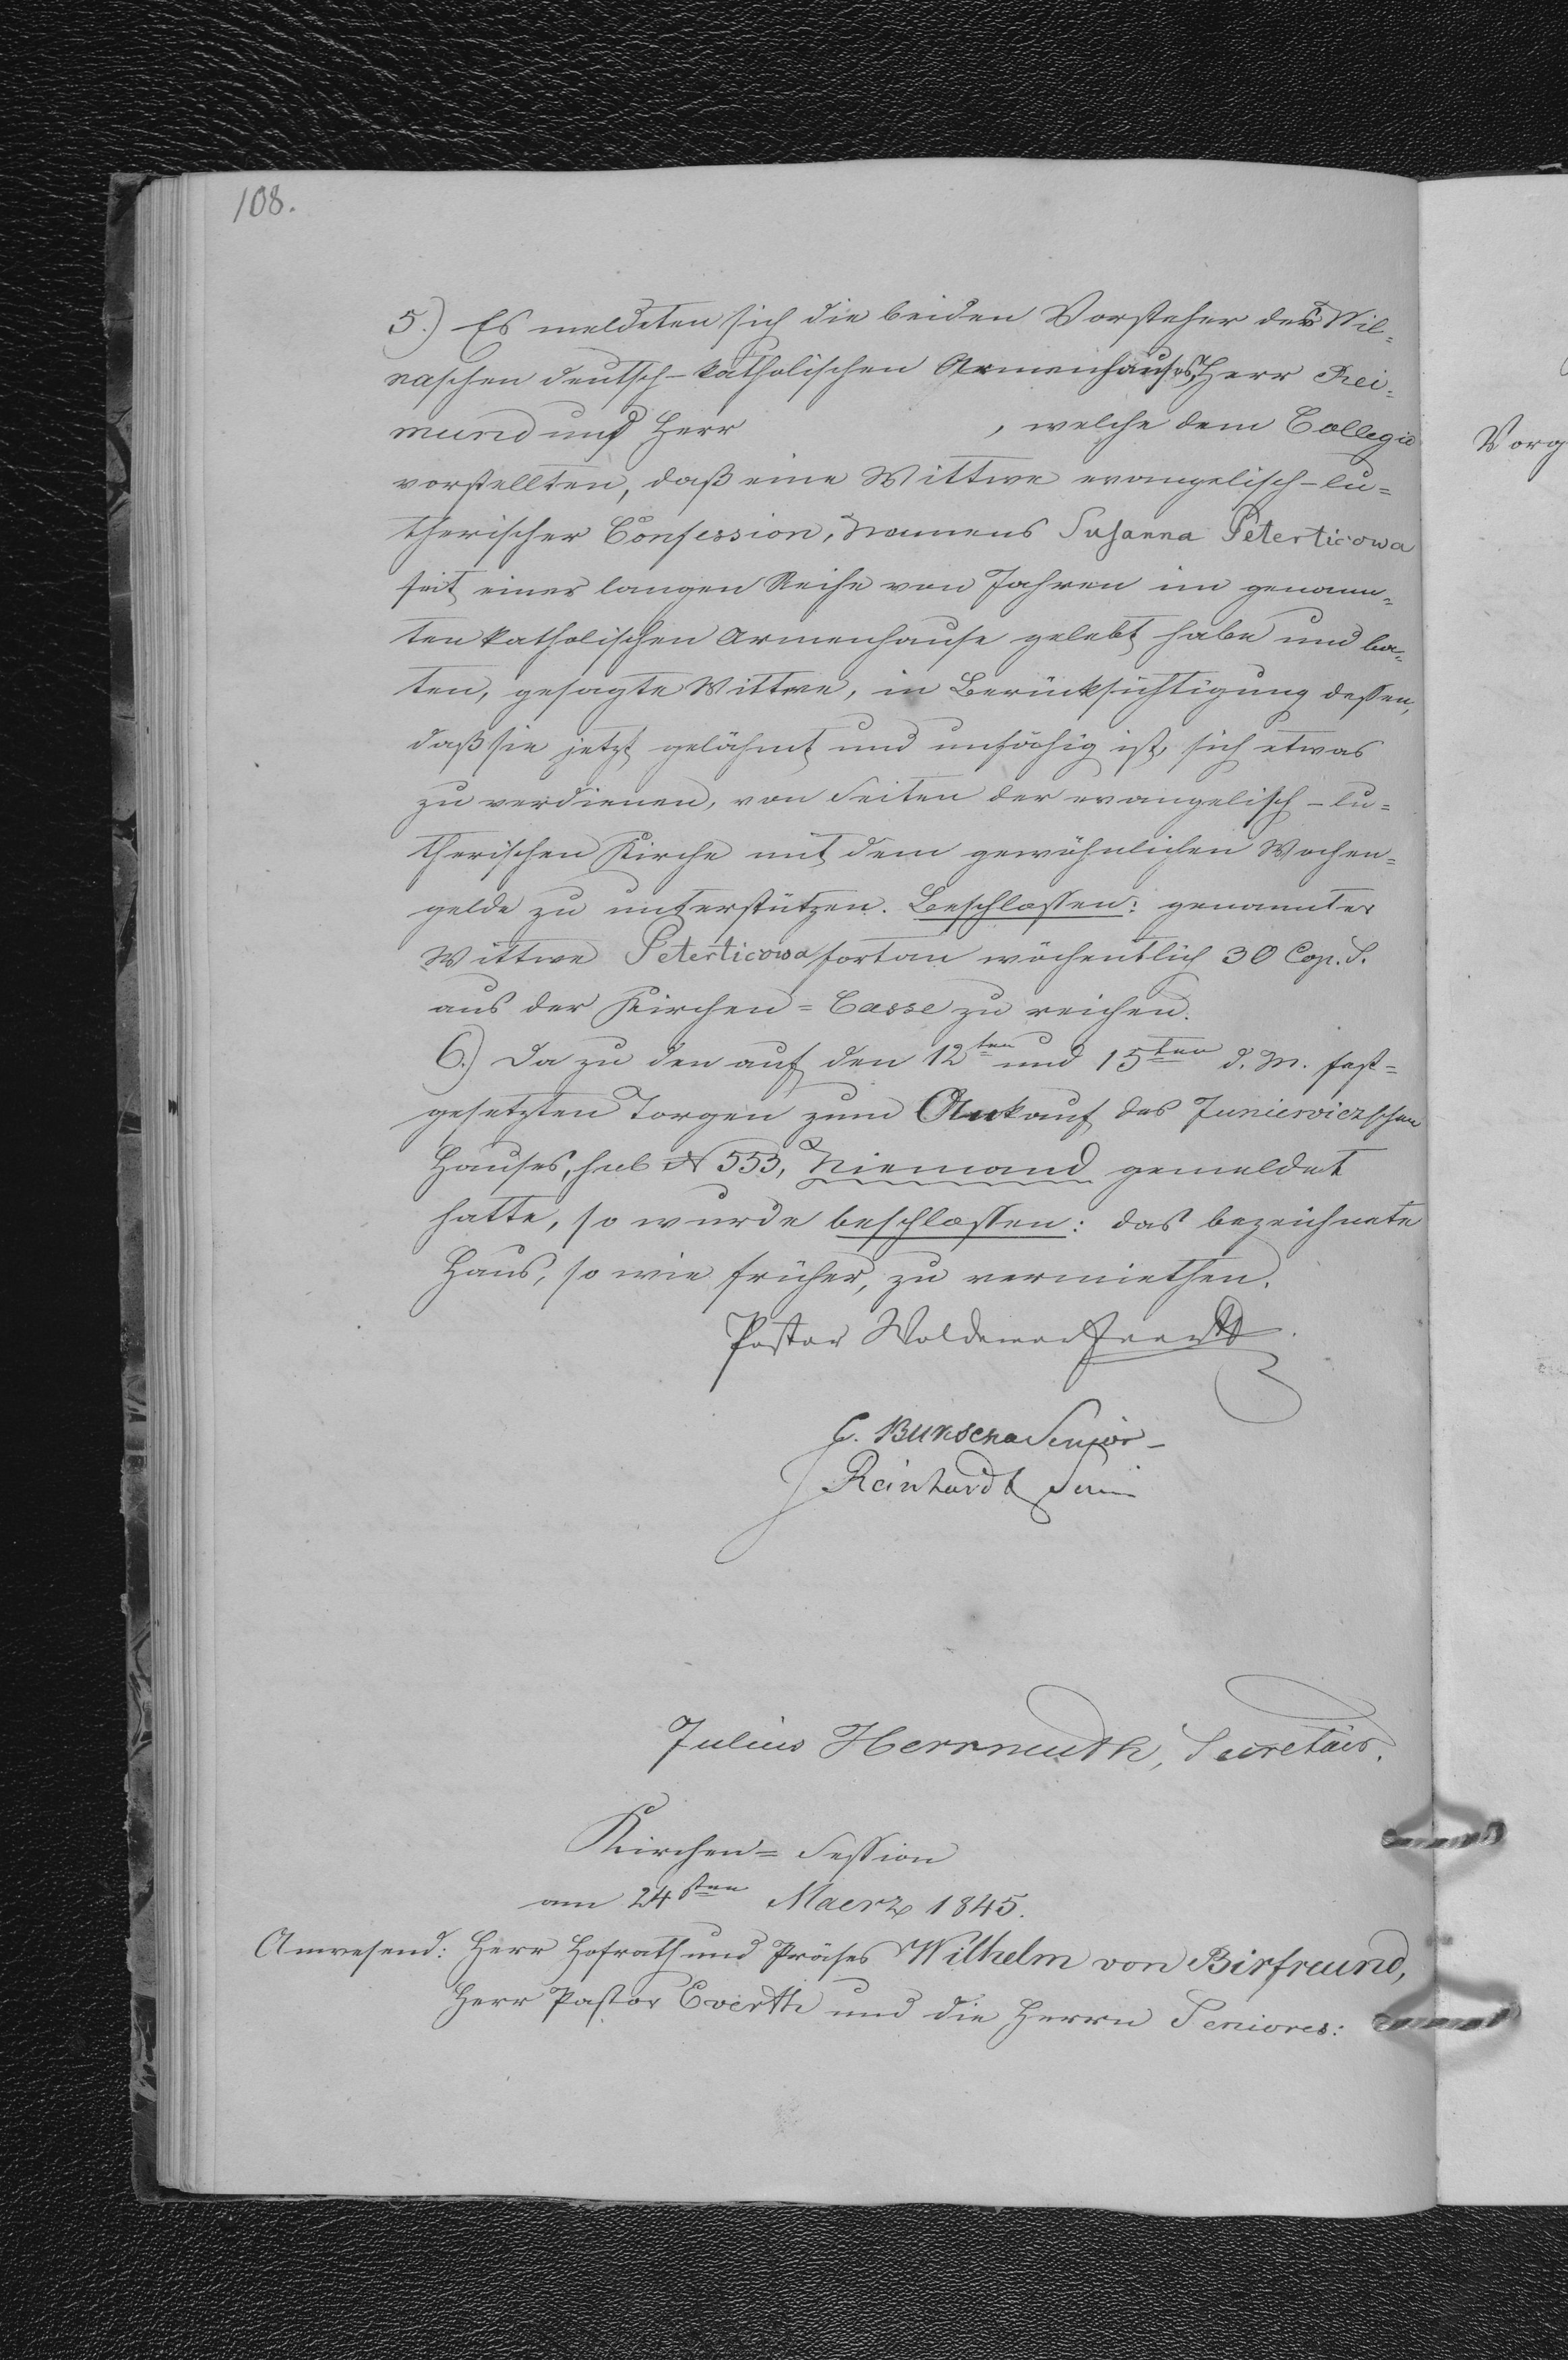 108.
5.) Es meldeten sich die beiden Vorsteher des Wil=
naschen deutsch-katholischen Armenhauses, Herr Rei=
mund und Herr , welche dem Collegio
vorstellten, daß eine Wittwe evangelisch-lu=
therischer Confession, Namens Susanna Peterticowa
seit einer langen Reihe von Jahren im genann=
ten katholischen Armenhause gelebt habe und ba=
ten, gesagte Wittwe, in Berücksichtigung dessen,
daß sie jetzt gelähmt und unfähig ist, sich etwas
zu verdienen, von Seiten der evangelisch-lu=
therischen Kirche mit dem gewöhnlichen Wochen=
gelde zu unterstützen. Beschlossen: genannter
Wittwe Peterticowa fortan wöchentlich 30 Cop. S.
aus der Kirchen=Casse zu reichen.
6.) Da zu den auf den 12ten und 15ten d. M. fest=
gesetzten Torgen zum Ankauf des Juniewiczschen
Hauses, sub N 553, Niemand gemeldet
hatte, so wurde beschlossen: das bezeichnete
Haus, so wie früher, zu vermiethen.
Pastor Woldemar Everth
C. Bunscha Senior
Reinhardt Seni
Julius Herrmuth, Secretair.
Kirchen=Session
am 24sten Maerz 1845.
Anwesend: Herr Hofrath und Präses Wilhelm von Birfreund,
Herr Pastor Everth und die Herrn Seniores:
Vorg